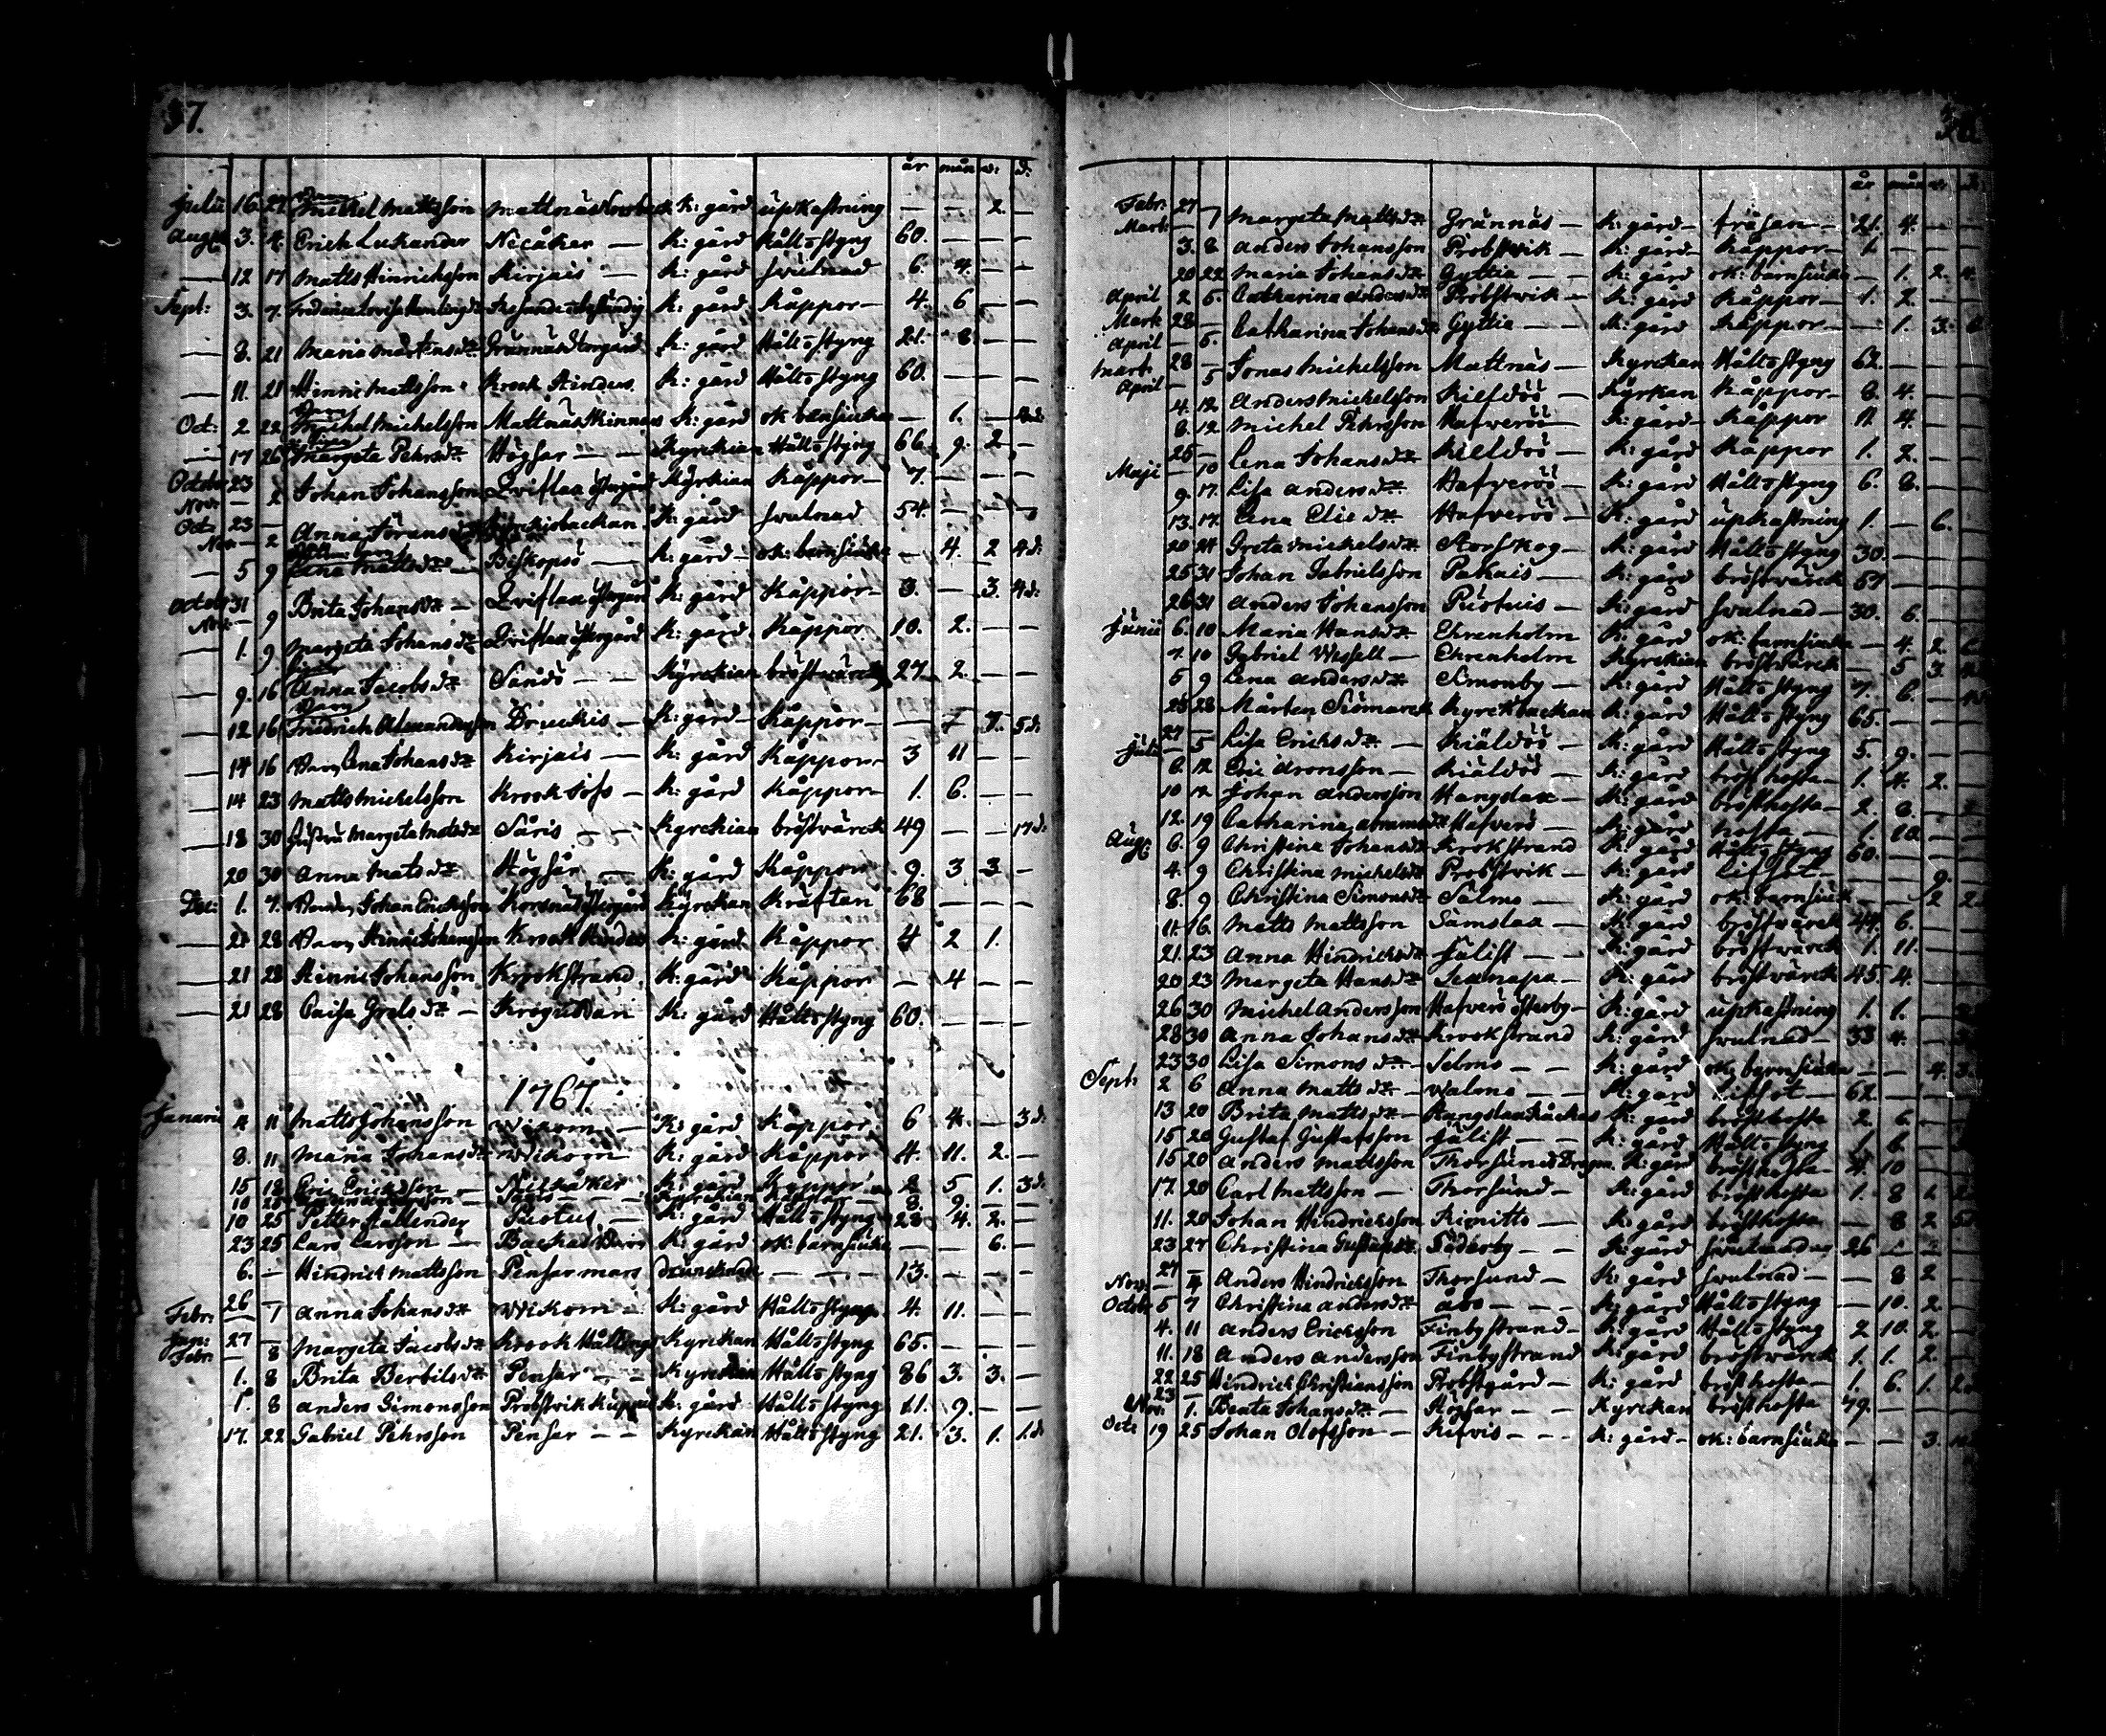 37.
år mån v: d.
Julii 16. 27 Michel Mattsson Mattnäs K: gård upkastning — — 2. —
Aug: 3. 4. Erich Lukander Nicåker — K: gård Hålls styng 60. — — —
— 12 17 Matts Hinrichsson Kirjais — K: gård swulnad 6. 4. — —
Sept: 3. 7. K: gård Kåppor — 4. 6 — —
— 8. 21 Maria Mårtensdr Grännäs K: gård Hålls styng 21. 8 — —
— 11. 21 Hinric Mattsson Krook Hinders K: gård Hålls styng 60. — — —
Oct: 2. 22 Michel Michelsson Mattnäs Skinnars K: gård ok: barnsiuka — 1. —
— 17 26 Margeta Pehrsdr Högsar — Kyrckian Hålls styng 66. 9. 2 —
October 23 —
Nov: — 2 Johan Johansson Qviflax Kyrkian Kåppor — 7. — — —
Oct: 23 —
Nov: — 2 Anna K: gård swulnad 54. — — —
— 5 9 Lena Mattsdr — Biskopsö — K: gård — ok: barnsiuka — 4. 2 4d:
October 31
Nov: — 9 Brita Johansdr — Qviflax K: gård Kåppor — 3. — 3. 4d:
— 1. 9 Margeta Johansdr Qviflax K: gård Kåppor 10. 2. — —
— 9. 16 Anna Jacobsdr Sandö — — Kyrckian bröstwärck 27 2. — —
— 12 16 Fridrich Alexandersson Druckis — K: gård — Kåppor — — 7 7. 5d:
— 14 16 Barn Lena Johansdr Kirjais — K: gård Kåppor 3 11 — —
— 14 23 Matts Michelsson Krook K: gård Kåppor 1. 6. — —
— 18 30 Hustru Margeta Matsdr Såris — — Kyrckian bröstwärck 49 — — 17d:
20 30 Anna Matsdr Högsår — K: gård Kåppor 9. 3 3 —
Dec: 1. 7. Johan Ericksson Kyrckan Kräftan 68 — — —
— 21 28 Barn Hinric Johansson Krook Hinders K: gård Kåppor 4 2 1.
— 21 28 Henric Johansson Krookstrand K: gård Kåppor — 4 — —
— 21 28 Caisa Grelsdr — K: gård Hålls styng 60. — — —
1767
Januarii 4 11 Matts Johansson Wikom — K: gård Kåppor 6 4. — 3d:
8. 11 Maria Johansdr Wikom K: gård Kåppor 4. 11. 2. —
15 18 Eric Ericksson — K: gård Kåppor 2 5 1. 3d:
10 25 Petter Hallender Pustus — K: gård Hålls styng 28 4. 2. —
23 25 Lars Larsson — K: gård ok: barnsiuka — — 6. —
6. — Hindrich Mattsson Pensar mars druncknade — — — 13. — — —
26 —
Febr: — 1 Anna Johansdr Wikom — K: gård Hålls styng 4. 11. — —
Jan: 27 —
Febr: — 8 Margeta Jacobsdr Krook Kyrckan Hålls styng 65. — — —
1. 8 Brita Bertilsdr Pensar — — Kyrckian Hålls styng 86 3. 3. —
1. 8 Anders Simonsson Probstvik K: gård Hålls styng 11. 9. — —
17. 22 Gabriel Pehrsson Pensar — — Kyrckian Hålls styng 21. 3. 1. 1.d:
år mån v: d.
Febr: 27 —
Mart: — 7 Margeta Mattsdr Grännäs — K: gård — fråsan — 21. 4. — —
3. 8 Anders Johansson Probstvik — K: gård — Kåppor — 1. — — —
20 22 Maria Johansdr Gyttia — — K: gård ok: barnsiuka — 1. 2.
April 2 5. Catharina Andersdr Probstvik — K: gård Kåppor — 1. 2. — —
Mart: 28 —
April — 5. Catharina Johansdr Gyttia — — K: gård Kåppor — — 1. 3.
Mart: 28 —
April — 5 Jonas Michelsson Mattnäs — Kyrckan Hålls styng 62. — — —
4. 12 Anders Michelsson Kieldöö — Kyrkan Kåppor — 8. 4. — —
8. 12. Michel Pehrsson Hafveröö — K: gård — Kåppor 11 4. — —
25 —
Maji — 10 Lena Johansdr Kieldöö — K: gård Kåppor 1. 2. — —
9. 17. Lisa Andersdr Hafveröö — K: gård Hålls styng 6. 8. — —
13. 17. Lena Elie dr Hafveröö — K: gård upkastning 1. — 6.
20 24 Greta Michelsdr Storskog — K: gård Hålls styng 30. — — —
25 31 Johan Gabrielsson Pakais — K: gård bröstwärck 67 — — —
26 31 Anders Johansson Pustuis — K: gård swulnad — 30. 6. — —
Junii 6. 10 Maria Hansdr Ehrenholm K: gård ok: barnsiuka — 4. 2.
7. 10 Gabriel Wessell — Ehrenholm Kyrckian bröstwärck — 5 3.
5 9 Lena Andersdr Simonby — K: gård Hålls styng 7. 6. —
25 28 Mårten Siömarck Kyrckbackan K: gård Hålls styng 65. — — —
27 —
Julii — 5 Lisa Ericksdr — Kiäldöö — K: gård Hålls styng 5. 9. — —
6. 12 Eric Aronsson — Kiäldöö — K: gård brösthosta — 1. 4. 2. —
10 12 Johan Andersson Hangslax — K: gård brösthosta — 2. —
12. 19 Catharina Hafverö — K: gård hosta — 1. 10. —
Aug: 6. 9 Christina Johansdr Krokstrand K: gård Hålls styng 60. — —
4. 9 Christina Michelsdr Probstvik — K: gård lifsot — — — 9.
8. 9 Christina Simonsdr Sälmo — K: gård ok: barnsiuk — — 2
11. 16. Matts Mattsson Samslax — K: gård bröstwärck 44. 6. —
21. 23 Anna Hindricksdr Jälist — — K: gård bröstwärck 1. 11. —
20 23 Margeta Hansdr K: gård bröstwärck 45. 4. —
26 30 Michel Andersson Hafverö österby — K: gård upkastning 1. 1. —
28 30 Anna Johansdr Krookstrand K: gård swulnad — 33 4. —
23 30 Lisa Simonsdr Selmo — — K: gård ok: barnsiuka — — 4. 3.
Sept: 2 6 Anna Mattsdr — Walmo — — K: gård lifsot — 62. — —
13 20 Brita Mattsdr — K: gård brösthosta 2. 6. —
15 20 Gustaf Gustafsson Jälist — — K: gård Hålls styng 1. 6. —
15 20 Anders Mattsson Thorsund K: gård brösthosta 4. 10 —
17. 20 Carl Mattsson — Thorsund — K: gård brösthosta 1. 8 1.
11. 20 Johan Hindricksson Rimitto — K: gård brösthosta — 8 2
23 27 Christina Gustafsdr Söderby — — K: gård 26 — —
27 —
Nov: — 4 Anders Hindricksson Thorsund — K: gård swulnad — — 8 2
October 5 7 Christina Andersdr åbo — — — K: gård Hålls styng — 10. 2.
4. 11 Anders Ericksson Finby strand — K: gård Hålls styng 2 10. 2. —
11. 18 Anders Andersson Finby strand K: gård bröstwärck 1. 1. 2. —
22 25 Hindrich Christiansson Probstgård — K: gård brösthosta — 1. 6. 1.
23 —
Nov: — 1. Beata Johansdr — Kyrckan brösthosta 79. — — —
Oct: 19 25 Johan Olofsson — K: gård — ok: barnsiuka — — 3.